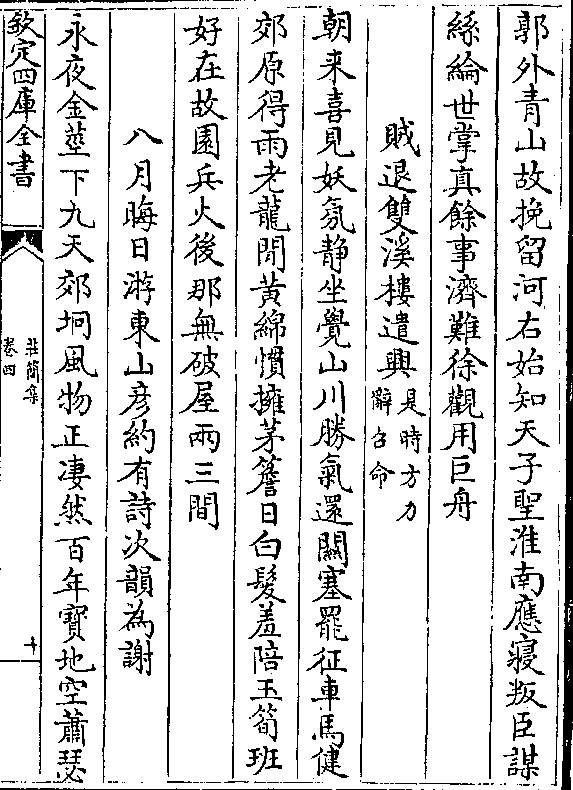 郭外青山故挽留河右始知天子聖淮南應寢叛臣謀
絲綸世掌真餘事濟難徐觀用巨舟
賊退雙溪樓遣興是時方力辭召命
朝来喜見妖氛静坐覺山川勝氣還關塞罷征車馬健
郊原得雨老龍閒黃綿慣擁茅簷日白髮羞陪玉筍班
好在故園兵火後那無破屋兩三間
八月晦日游東山彦約有詩次韻為謝
永夜金莖下九天郊坰風物正凄然百年寶地空蕭瑟
欽定四庫全書
莊簡集
卷四
十